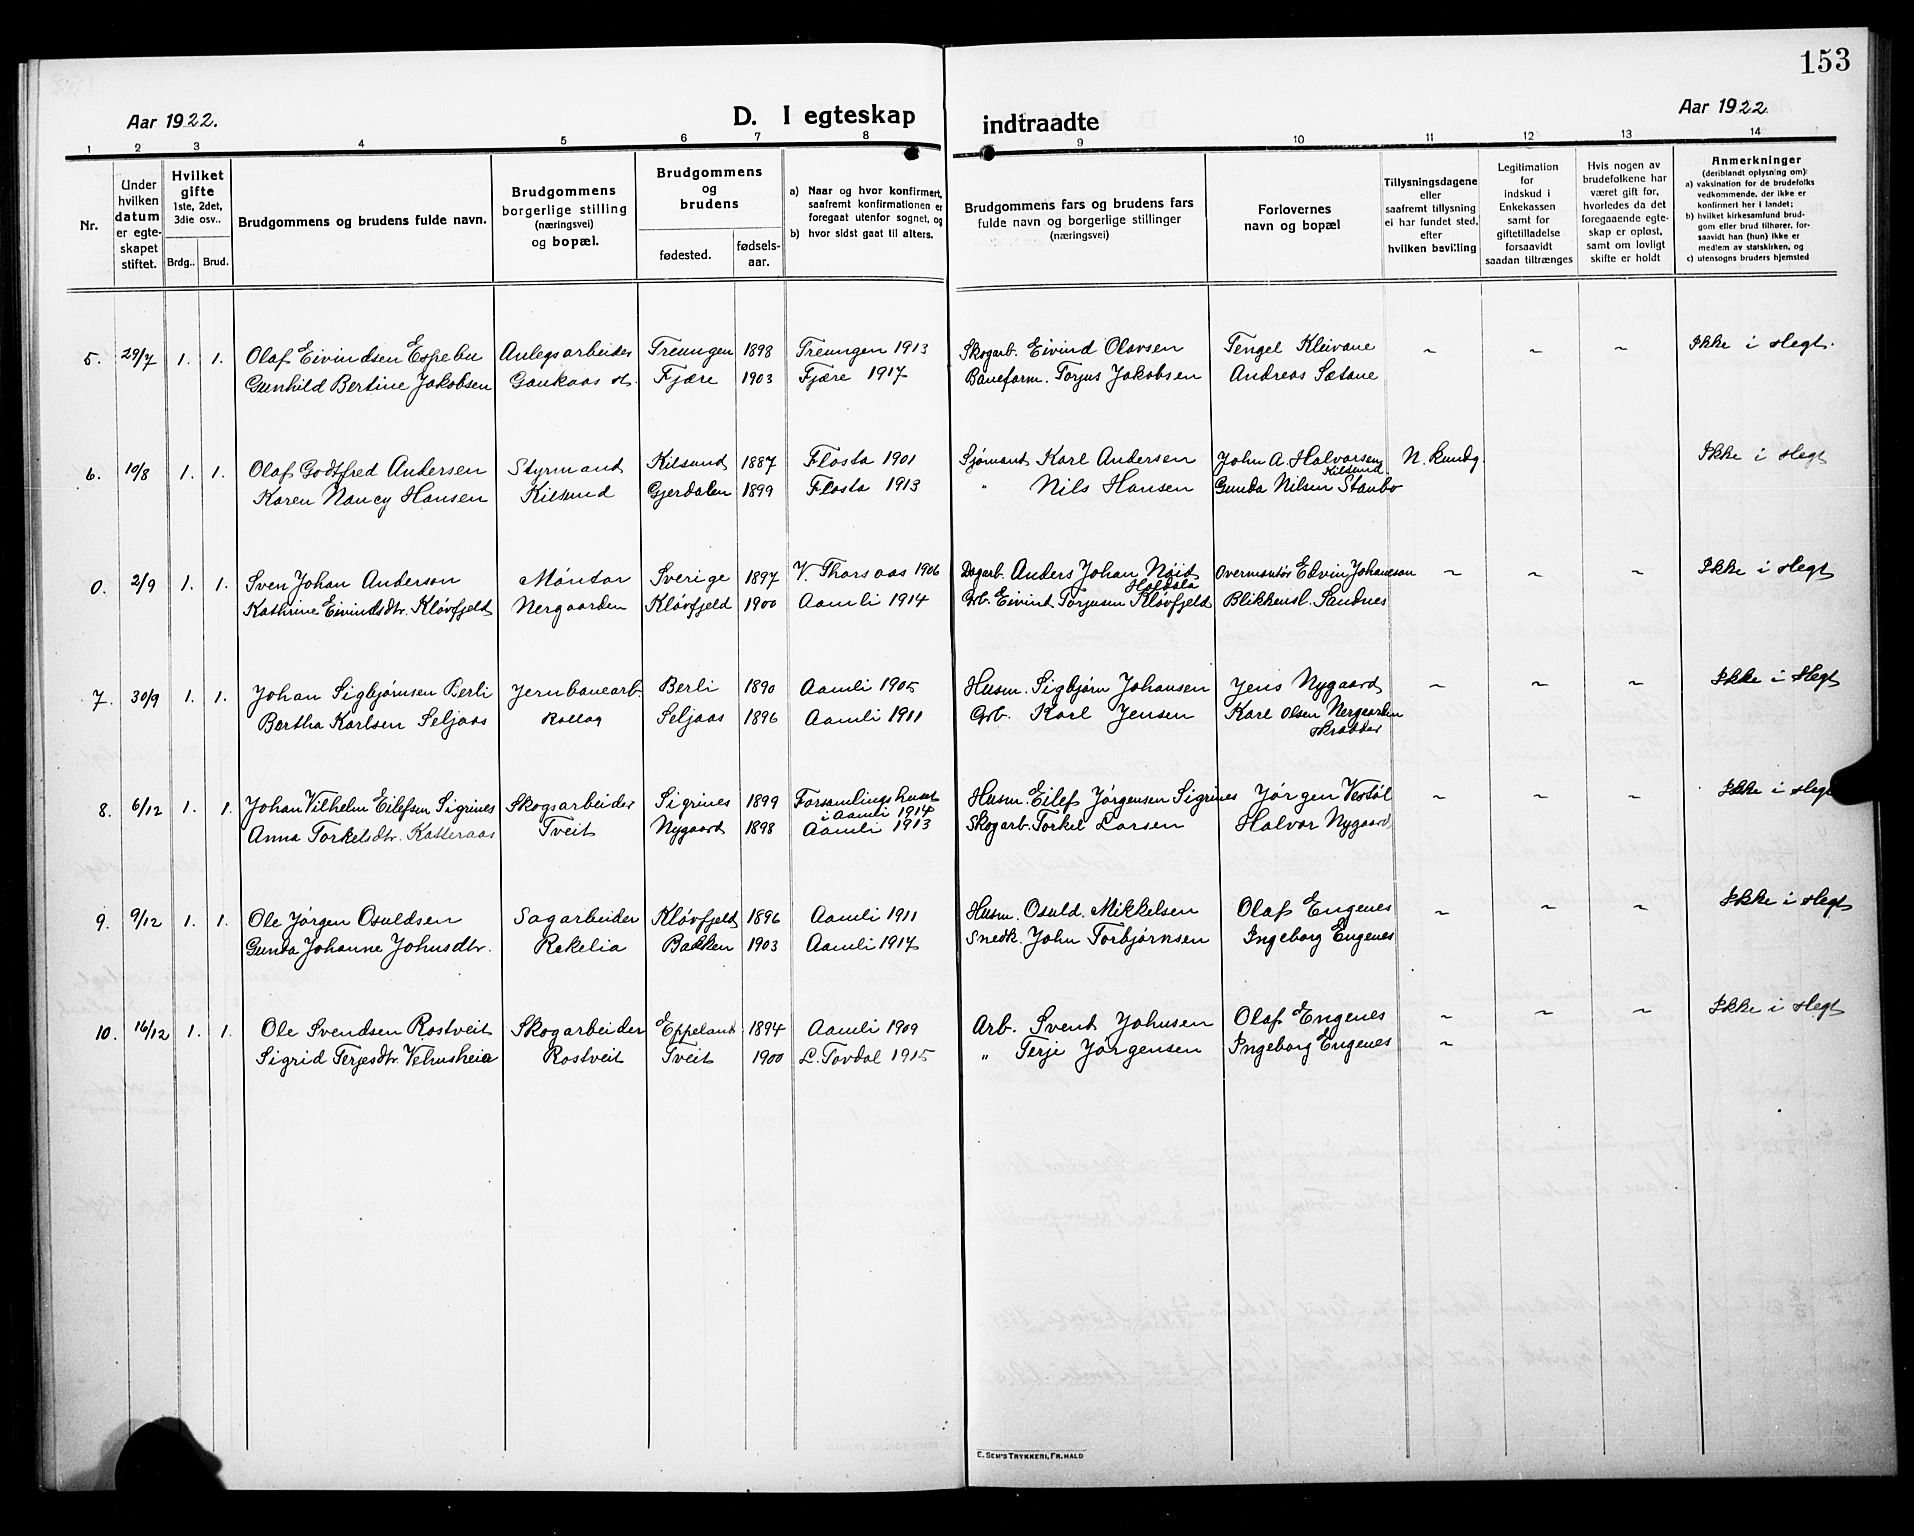 153
Aar 1922.
D. I egteskap indtraadte
Aar 1922
1 2 3 4 5 6 7 8 9 10 11 12 13 14
Nr.
Under hvilken datum er egteskapet stiftet.
Hvilket gifte 1ste, 2det, 3die osv..
Brdg.. Brud.
Brudgommens og brudens fulde navn.
Brudgommens borgerlige stilling (næringsvei) og bopæl.
Brudgommens og brudens
fødested. fødselsaar.
a) Naar og hvor konfirmert, saafremt konfirmationen er foregaat utenfor sognet, og
b) hvor sidst gaat til alters.
Brudgommens fars og brudens fars fulde navn og borgerlige stillinger (næringsvei)
Forlovernes navn og bopæl
Tillysningsdagene eller saafremt tillysning ei har fundet sted, efter hvilken bevilling
Legitimation for indskud i Enkekassen samt for giftetilladelse forsaavidt saadan tiltrænges
Hvis nogen av brudefolkene har været gift før, hvorledes da det foregaaende egteskap er opløst, samt om lovligt skifte er holdt
Anmerkninger (deriblandt oplysning om):
a) vaksination for de brudefolks vedkommende, der ikke er konfirmert her i landet;
b) hvilket kirkesamfund brudgom eller brud tilhører, forsaavidt han (hun) ikke er medlem av statskirken, og
c) utensogns bruders hjemsted
5. 29/7 1. 1. Olaf Eivindsen Espebu Anlegsarbeider Treungen 1898 Treungen 1913 Skogarb. Eivind Olavsen Tengel Kleivane ~ ~ ~ Ikke i slegt.
Gunhild Bertine Jakobsen Gaukaas st. Fjære 1903 Fjære 1917 Baneform. Torjus Jakobsen Andreas Sætane
6. 10/8 1. 1. Olaf Godtfred Andersen Styrmand Kilsund 1887 Flosta 1901 Sjømand Karl Andersen John A. Halvorsen Kilsund N. kundg. Ikke i slegt
Karen Nancy Hansen Kilsund Gjerdalen 1899 Flosta 1913 " Nils Hansen Gunda Nilsen Staubo
0. 2/9 1. 1. Sven Johan Anderson Montør Sverige 1897 V. Thorsaas 1906 Dagarb. Anders Johan Overmontør Edvin Johanson ~ ~ ~ Ikke i slegt
Kathrine Eivindsdtr. Kløvfjeld Nergaarden Kløvfjeld 1900 Aamli 1914 Grb. Eivind Torjusen Kløvfjeld Blikkensl. Sandnes
7. 30/9 1. 1. Johan Sigbjørnsen Berli Jernbanearb. Berli 1890 Aamli 1905 Husm. Sigbjørn Johansen Jens Nygaard ~ ~ ~ Ikke i slegt
Bertha Karlsen Seljaas Seljaas 1896 Aamli 1911 Grb. Karl Jensen Karl Olsen Nergaarden skrædder
8. 6/12 1. 1. Johan Vilhelm Eilefsen Sigrines Skogsarbeider Sigrines 1899 Forsamlingshuset i Aamli 1914 Husm. Eilef Jørgensen Sigrines Jørgen Vestøl ~ ~ ~ Ikke i slegt
Anna Torkelsdtr. Katteraas Tveit Nygaard 1898 Aamli 1913 Skogarb. Torkel Larsen Halvor Nygaard
9. 9/12 1. 1. Ole Jørgen Osuldsen Sagarbeider Kløvfjeld 1896 Aamli 1911 Husm. Osuld Mikkelsen Olaf Engenes ~ ~ ~ Ikke i slegt
Gunda Johanne Johnsdtr. Rekelia Bakken 1903 Aamli 1914 Snedk. John Torbjørnsen Ingeborg Engenes
10. 16/12 1. 1. Ole Svendsen Rostveit Skogarbeider Eppeland 1894 Aamli 1909 Arb. Svend Johnsen Olaf Engenes ~ ~ ~ Ikke i slegt
Sigrid Terjesdtr. Velmsheia Rostveit Tveit 1900 L. Tovdal 1915 " Terje Jørgensen Ingeborg Engenes ~
C. SEM'S TRYKKERI, FR.HALD